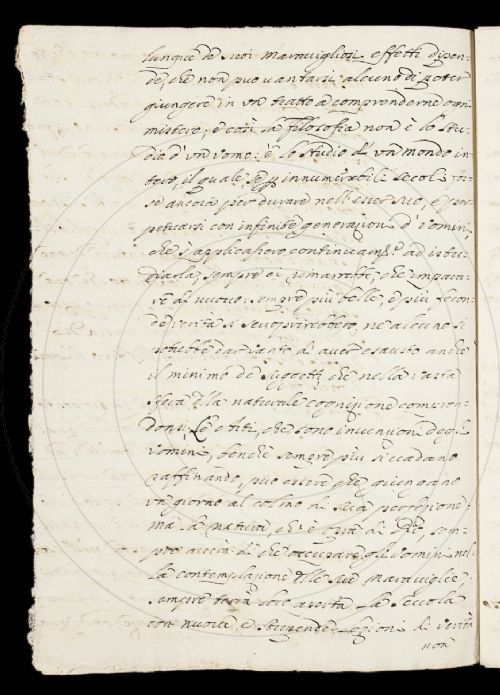 lunque de suoi maravigliosi effetti dipen-
de, che non può vantarsi alcuno di poter
giungere in un tratto à comprenderne ogni
mistero; e così la filosofia non è lo stu-
dio d'un uomo: è lo studio di un mondo in-
tero, il quale se p innumerabili secoli for-
se ancora perdurare nell'esser suo, e per-
petuarsi con infinite generazioni d'uomini,
che s'applicassero continuam.te ad istu-
diarla, sempre vi rimarrebbe, che impara-
re di nuovo: sempre più belle, e più secon-
de verità si scuoprirebbero, ne alcuno si
potrebbe dar vanto di aver esausto anche
il minimo de suggetti che nella vasta
sfera della naturale cognizione compren-
donsi. Le Arti, che sono invenzioni degl'
uomini, benche sempre più si vadano
raffinando, può essere che giungano
un giorno al colmo di sua perfezione;
ma la natura, ch'è opera di Dio, sem-
pre averà di che occupare gli uomini nel-
la contemplazione delle sue maraviglie,
sempre terrà loro aperta la scuola
con nuove, e stupende lezioni di verità
non